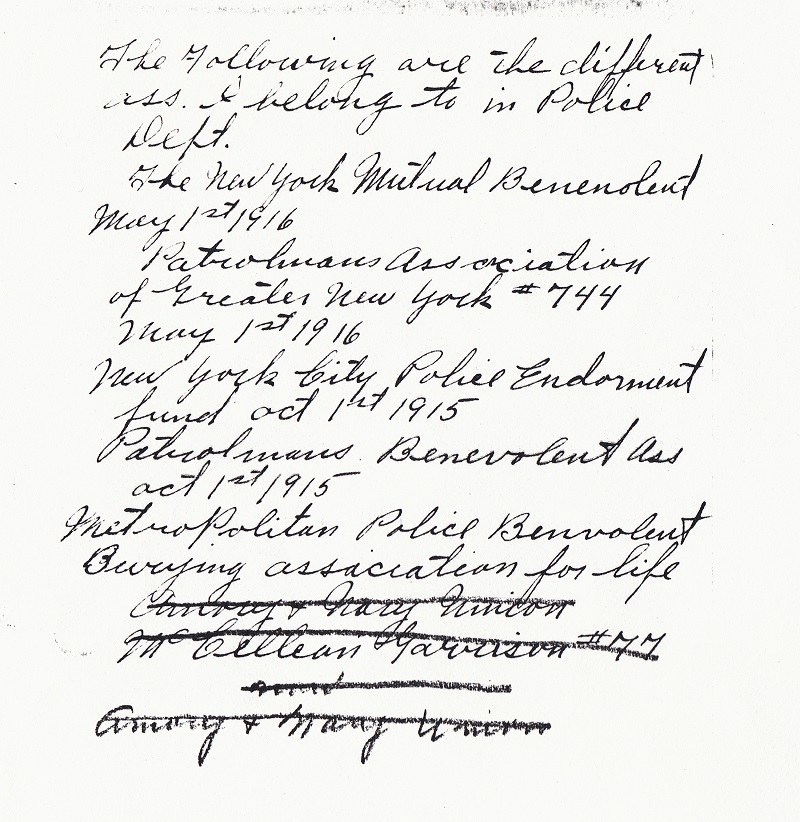 The Following are the different
ass. I belong to in Police
Dept.
The New York Mutual Benenolent
May 1st 1916
Patrolmans Association
of Greater New York #744
May 1st 1916
New York City Police Endorment
fund oct 1st 1915
Patrolmans Benevolent Ass
oct 1st 1915
Metropolitan Police Benvolent
Burying association for life
& Navy Unicon
Mc Cellean Garrison #77
and
Amory & Navy Union